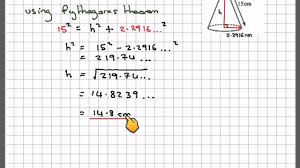 using Pythagoras theorem
15² = h² + 2.2916...²
h² = 15² - 2.2916...²
= 219.74...
h = √219.74...
= 14.8239...
= 14.8 cm
15cm
2.2916cm